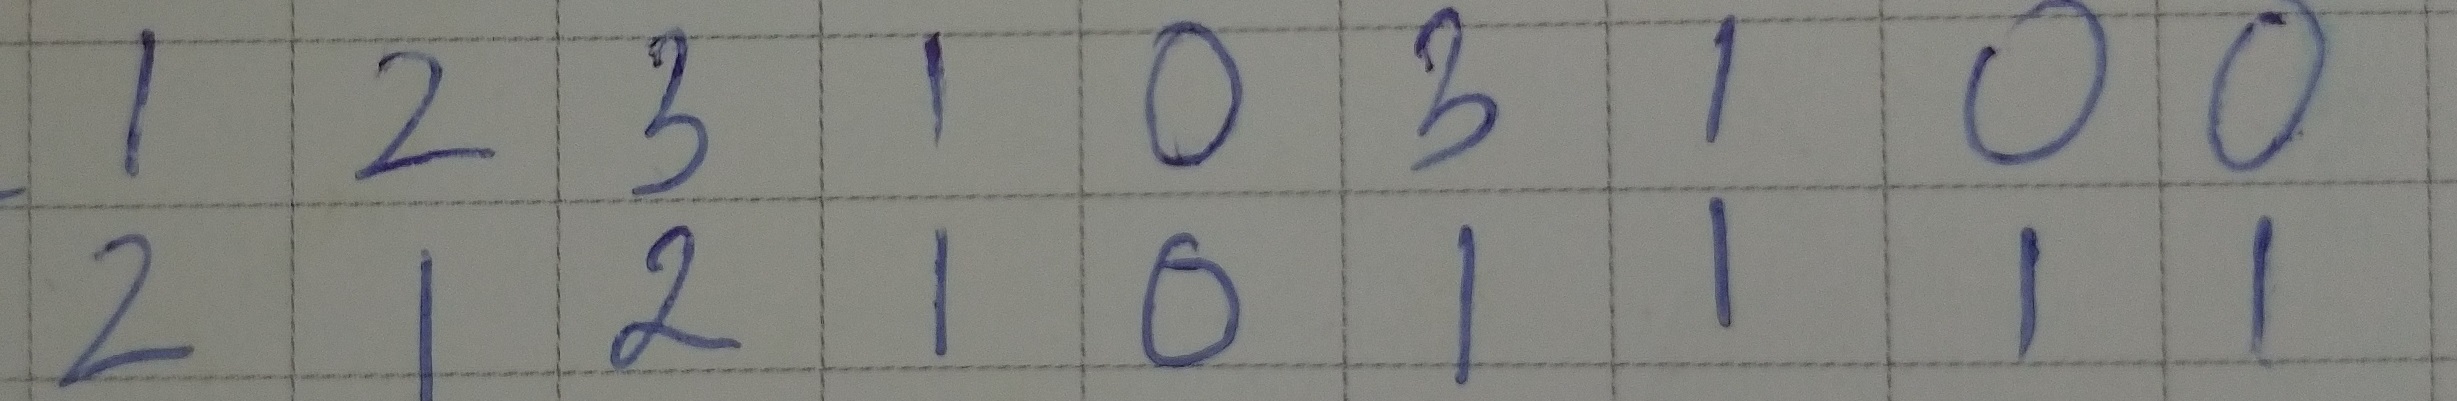 1 2 3 1 0 3 1 0 0
2 1 2 1 6 1 1 1 1